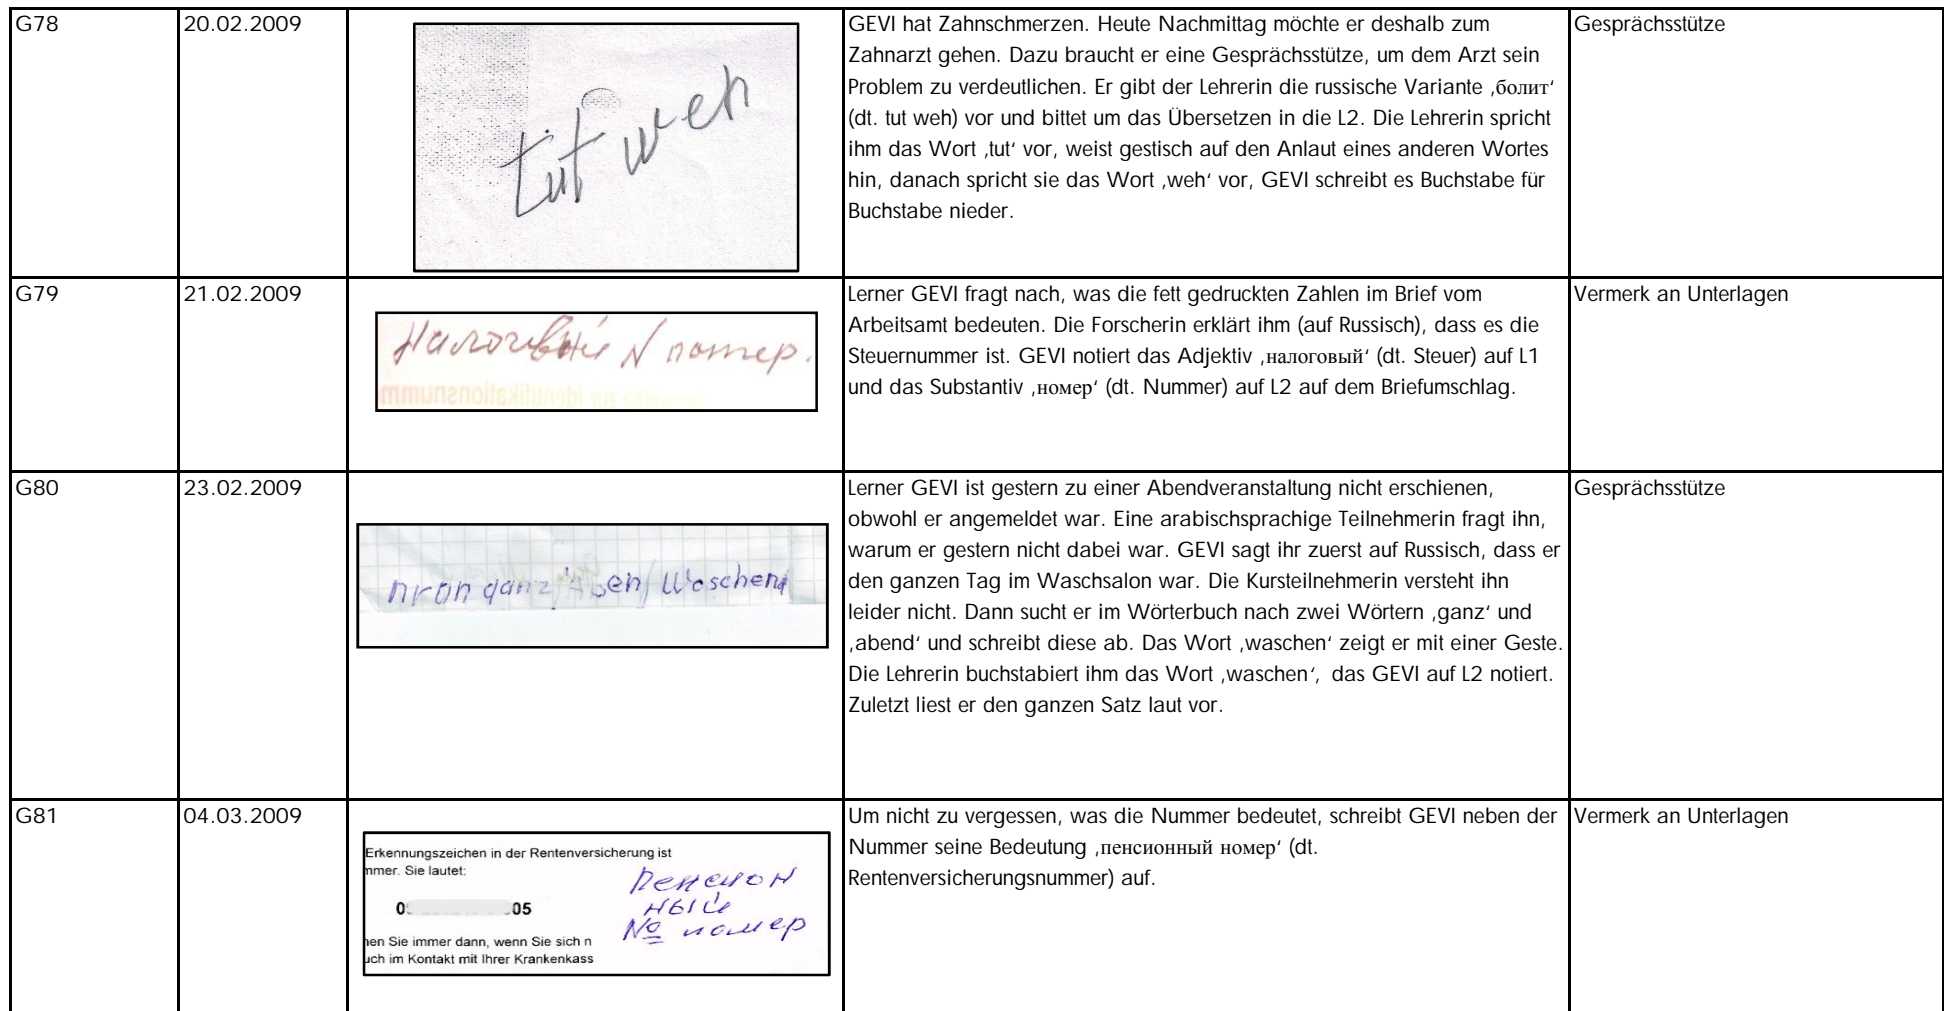 G78
20.02.2009
tut weh
GEVI hat Zahnschmerzen. Heute Nachmittag möchte er deshalb zum
Zahnarzt gehen. Dazu braucht er eine Gesprächsstütze, um dem Arzt sein
Problem zu verdeutlichen. Er gibt der Lehrerin die russische Variante ‚болит‘
(dt. tut weh) vor und bittet um das Übersetzen in die L2. Die Lehrerin spricht
ihm das Wort ‚tut‘ vor, weist gestisch auf den Anlaut eines anderen Wortes
hin, danach spricht sie das Wort ‚weh‘ vor, GEVI schreibt es Buchstabe für
Buchstabe nieder.
Gesprächsstütze
G79
21.02.2009
Налоговый N
Lerner GEVI fragt nach, was die fett gedruckten Zahlen im Brief vom
Arbeitsamt bedeuten. Die Forscherin erklärt ihm (auf Russisch), dass es die
Steuernummer ist. GEVI notiert das Adjektiv ‚налоговый‘ (dt. Steuer) auf L1
und das Substantiv ‚номер‘ (dt. Nummer) auf L2 auf dem Briefumschlag.
Vermerk an Unterlagen
G80
23.02.2009
ganz Waschen
Lerner GEVI ist gestern zu einer Abendveranstaltung nicht erschienen,
obwohl er angemeldet war. Eine arabischsprachige Teilnehmerin fragt ihn,
warum er gestern nicht dabei war. GEVI sagt ihr zuerst auf Russisch, dass er
den ganzen Tag im Waschsalon war. Die Kursteilnehmerin versteht ihn
leider nicht. Dann sucht er im Wörterbuch nach zwei Wörtern ‚ganz‘ und
‚abend‘ und schreibt diese ab. Das Wort ‚waschen‘ zeigt er mit einer Geste.
Die Lehrerin buchstabiert ihm das Wort ‚waschen‘, das GEVI auf L2 notiert.
Zuletzt liest er den ganzen Satz laut vor.
Gesprächsstütze
G81
04.03.2009
Erkennungszeichen in der Rentenversicherung ist
mmer. Sie lautet:
0 05
hen Sie immer dann, wenn Sie sich n
uch im Kontakt mit Ihrer Krankenkass
Пенсион
ный
№ номер
Um nicht zu vergessen, was die Nummer bedeutet, schreibt GEVI neben der
Nummer seine Bedeutung ‚пенсионный номер‘ (dt.
Rentenversicherungsnummer) auf.
Vermerk an Unterlagen